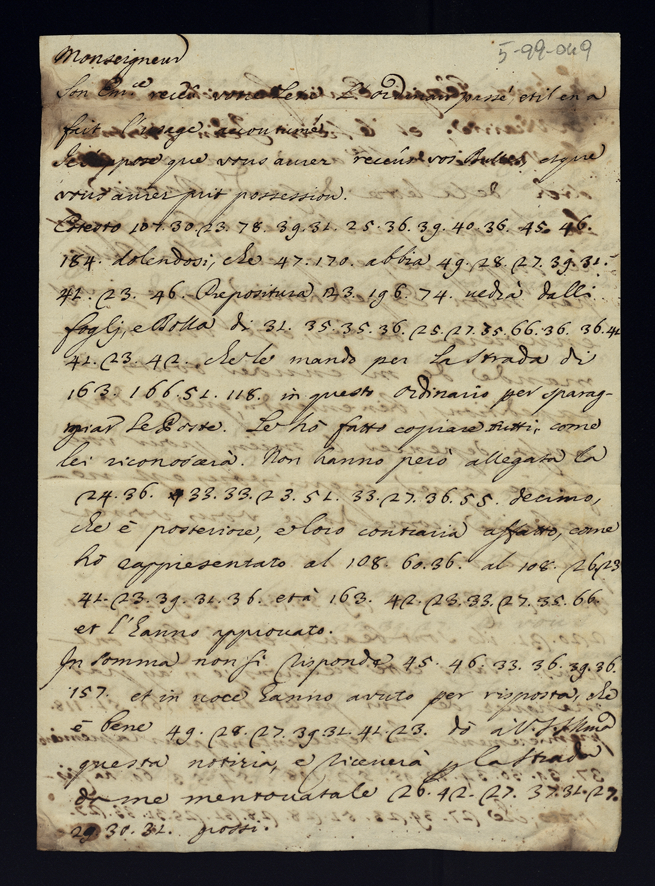 5-99-049
Monseigneur
Son Em.ce receu vostre l'ordinaire passé, et il en a
fait l'usage accoutumé.
Je suppose que vous aurez receu vos Bulles, et que
vous aurez prit possession.
107. 30. 23. 78. 39. 31. 25. 36. 39. 40. 36. 45. 46.
184. dolendosi, che 47. 170. abbia 49. 28. 27. 39. 31.
41. 23. 46. Prepositura 123. 196. 74. vedrà dalli
foglj, e Bolla di 31. 35. 35. 36. 25. 27. 35. 66. 36. 36. 41
41. 23. 42. che le mando per la strada di
163. 166. 51. 118. in questo ordinario per sparag-
miar le Poste. Le hò fatto copiare tutti, come
lei riconoscerà. Non hanno però allegata la
24. 36. 33. 33. 23. 51. 33. 27. 36. 55. decimo,
che è posteriore, e loro contraria affatto, come
hò rappresentato al 108. 60. 36. al 108. 26. 23
41. 23. 39. 31. 36. et à 163. 42. 23. 33. 27. 35. 66.
et l'hanno approvato.
In somma non si risponde 45. 46. 33. 36. 39. 36.
157. et in voce hanno avuto per risposta, che
è bene 49. 28. 27. 39 31. 41. 23. dò à V. S. Ill.ma
questa notizia, e riceverà p la strada
da me mentovatale 26. 42. 27. 37. 31. 27.
29. 30. 31. possi.